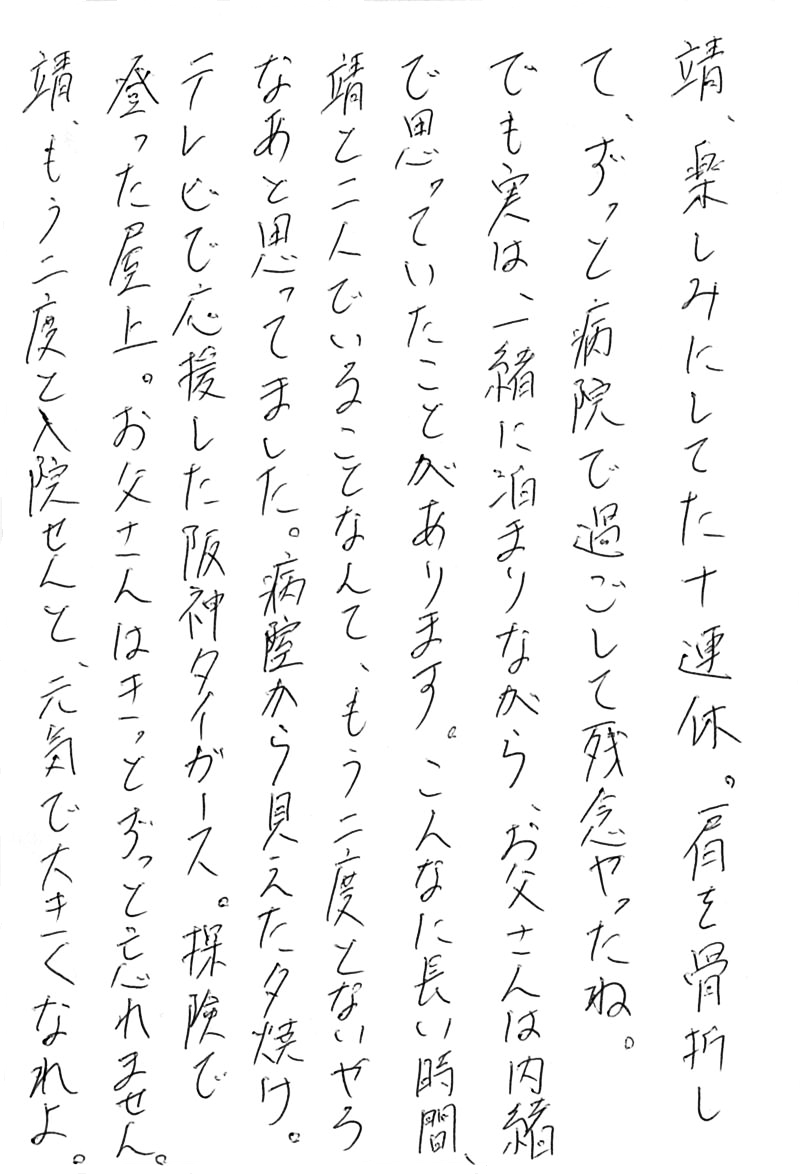 靖、楽しみにしてた十連休。肩を骨折し
て、ずっと病院で過ごして残念やったね。
でも実は、一緒に泊まりながら、お父さんは内緒
で思っていたことがあります。こんなに長い時間、
靖と二人でいることなんて、もう二度とないやろ
なあと思ってました。病院から見えた夕焼け。
テレビで応援した阪神タイガース。探険で
登った屋上。お父さんはきっとずっと忘れません。
靖、もう二度と入院せんと、元気で大きくなれよ。